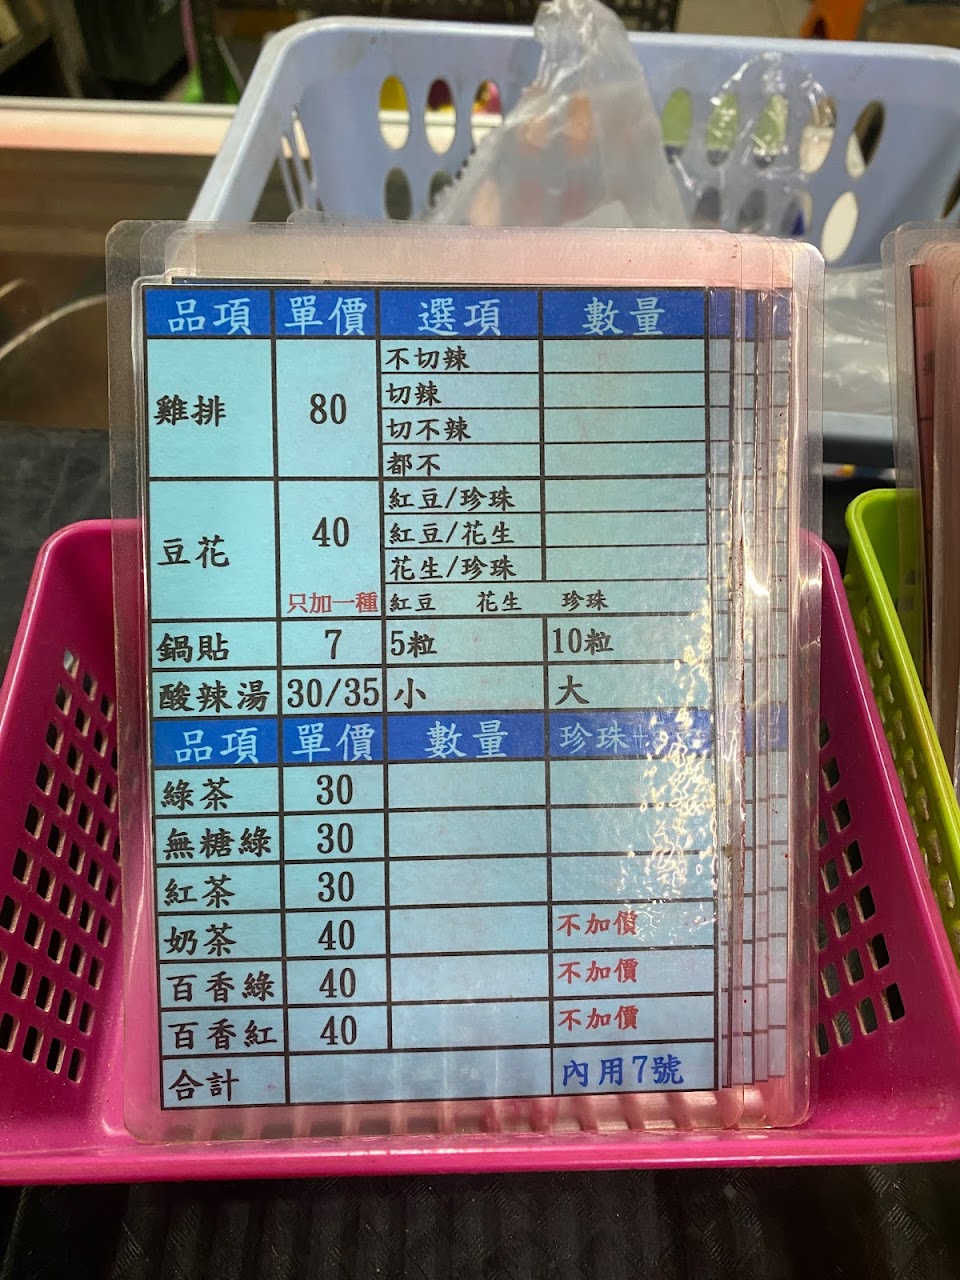 品項 單價 選項 數量
雞排 80 不切辣
切辣
切不辣
都不
豆花 40 紅豆/珍珠
紅豆/花生
花生/珍珠
只加一種 紅豆 花生 珍珠
鍋貼 7 5粒 10粒
酸辣湯 30/35 小 大
品項 單價 數量 珍珠+
綠茶 30
無糖綠 30
紅茶 30
奶茶 40 不加價
百香綠 40 不加價
百香紅 40 不加價
合計 內用7號